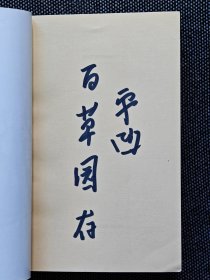 百草园存
平凹